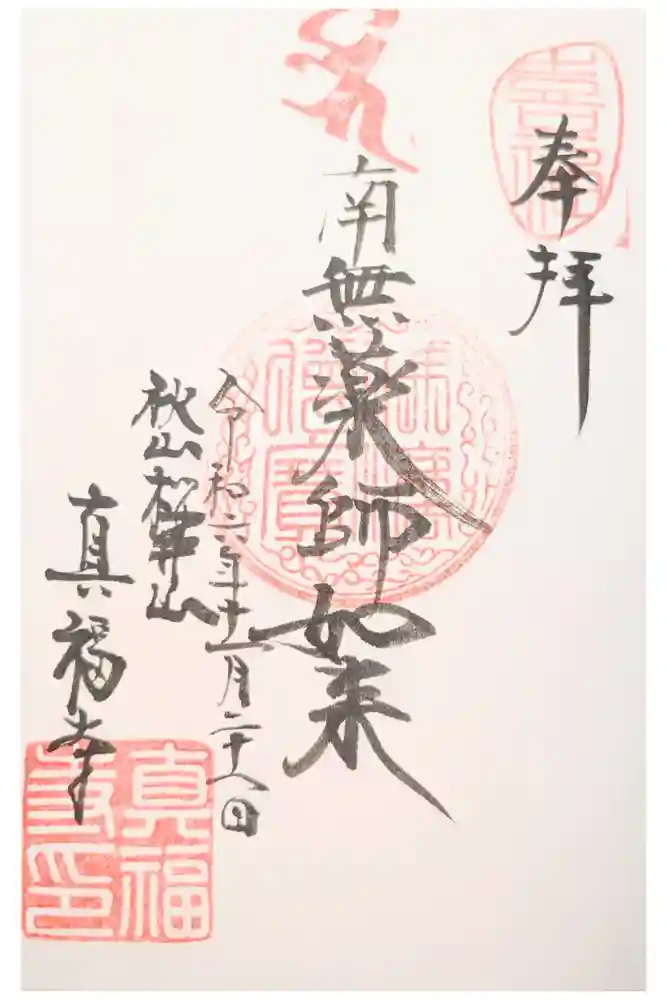 奉拝
南無薬師如来
令和六年十一月二十八日
秋山松井山
真福寺
真福
寺印